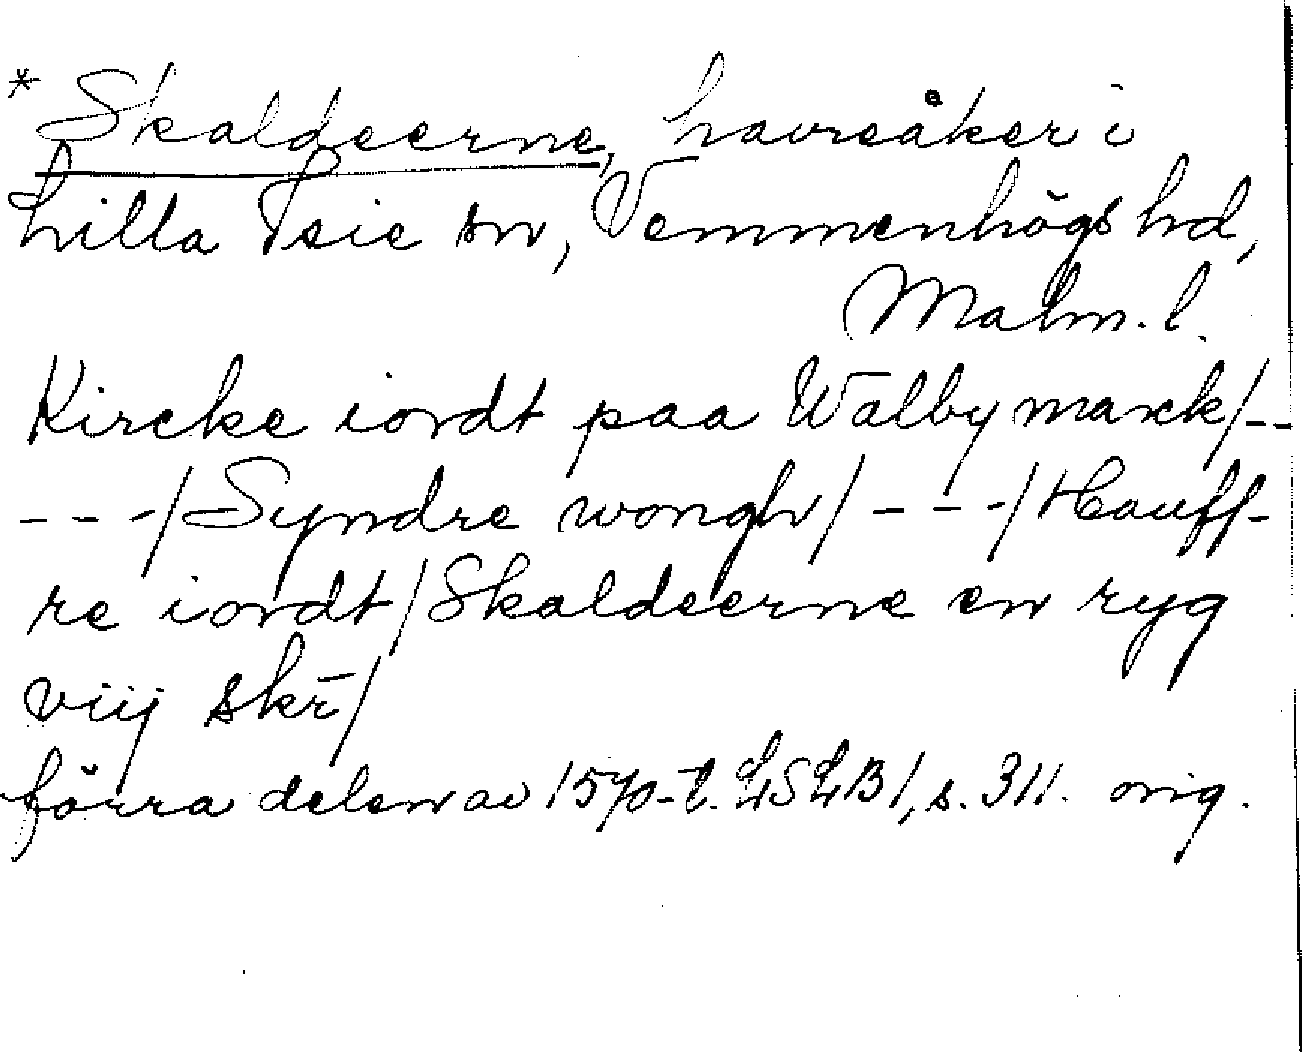 * Skaldeerne, havreåker i
Lilla Isie sn, Vemmenhögs hd,
Malm. l.
Kircke iordt paa Walby marck/--
---/Syndre wongh/---/Hauff-
re iordt/Skaldeerne en ryg
viij skr̄/
förra delen av 1570-t. LSLB1, s. 311. orig.